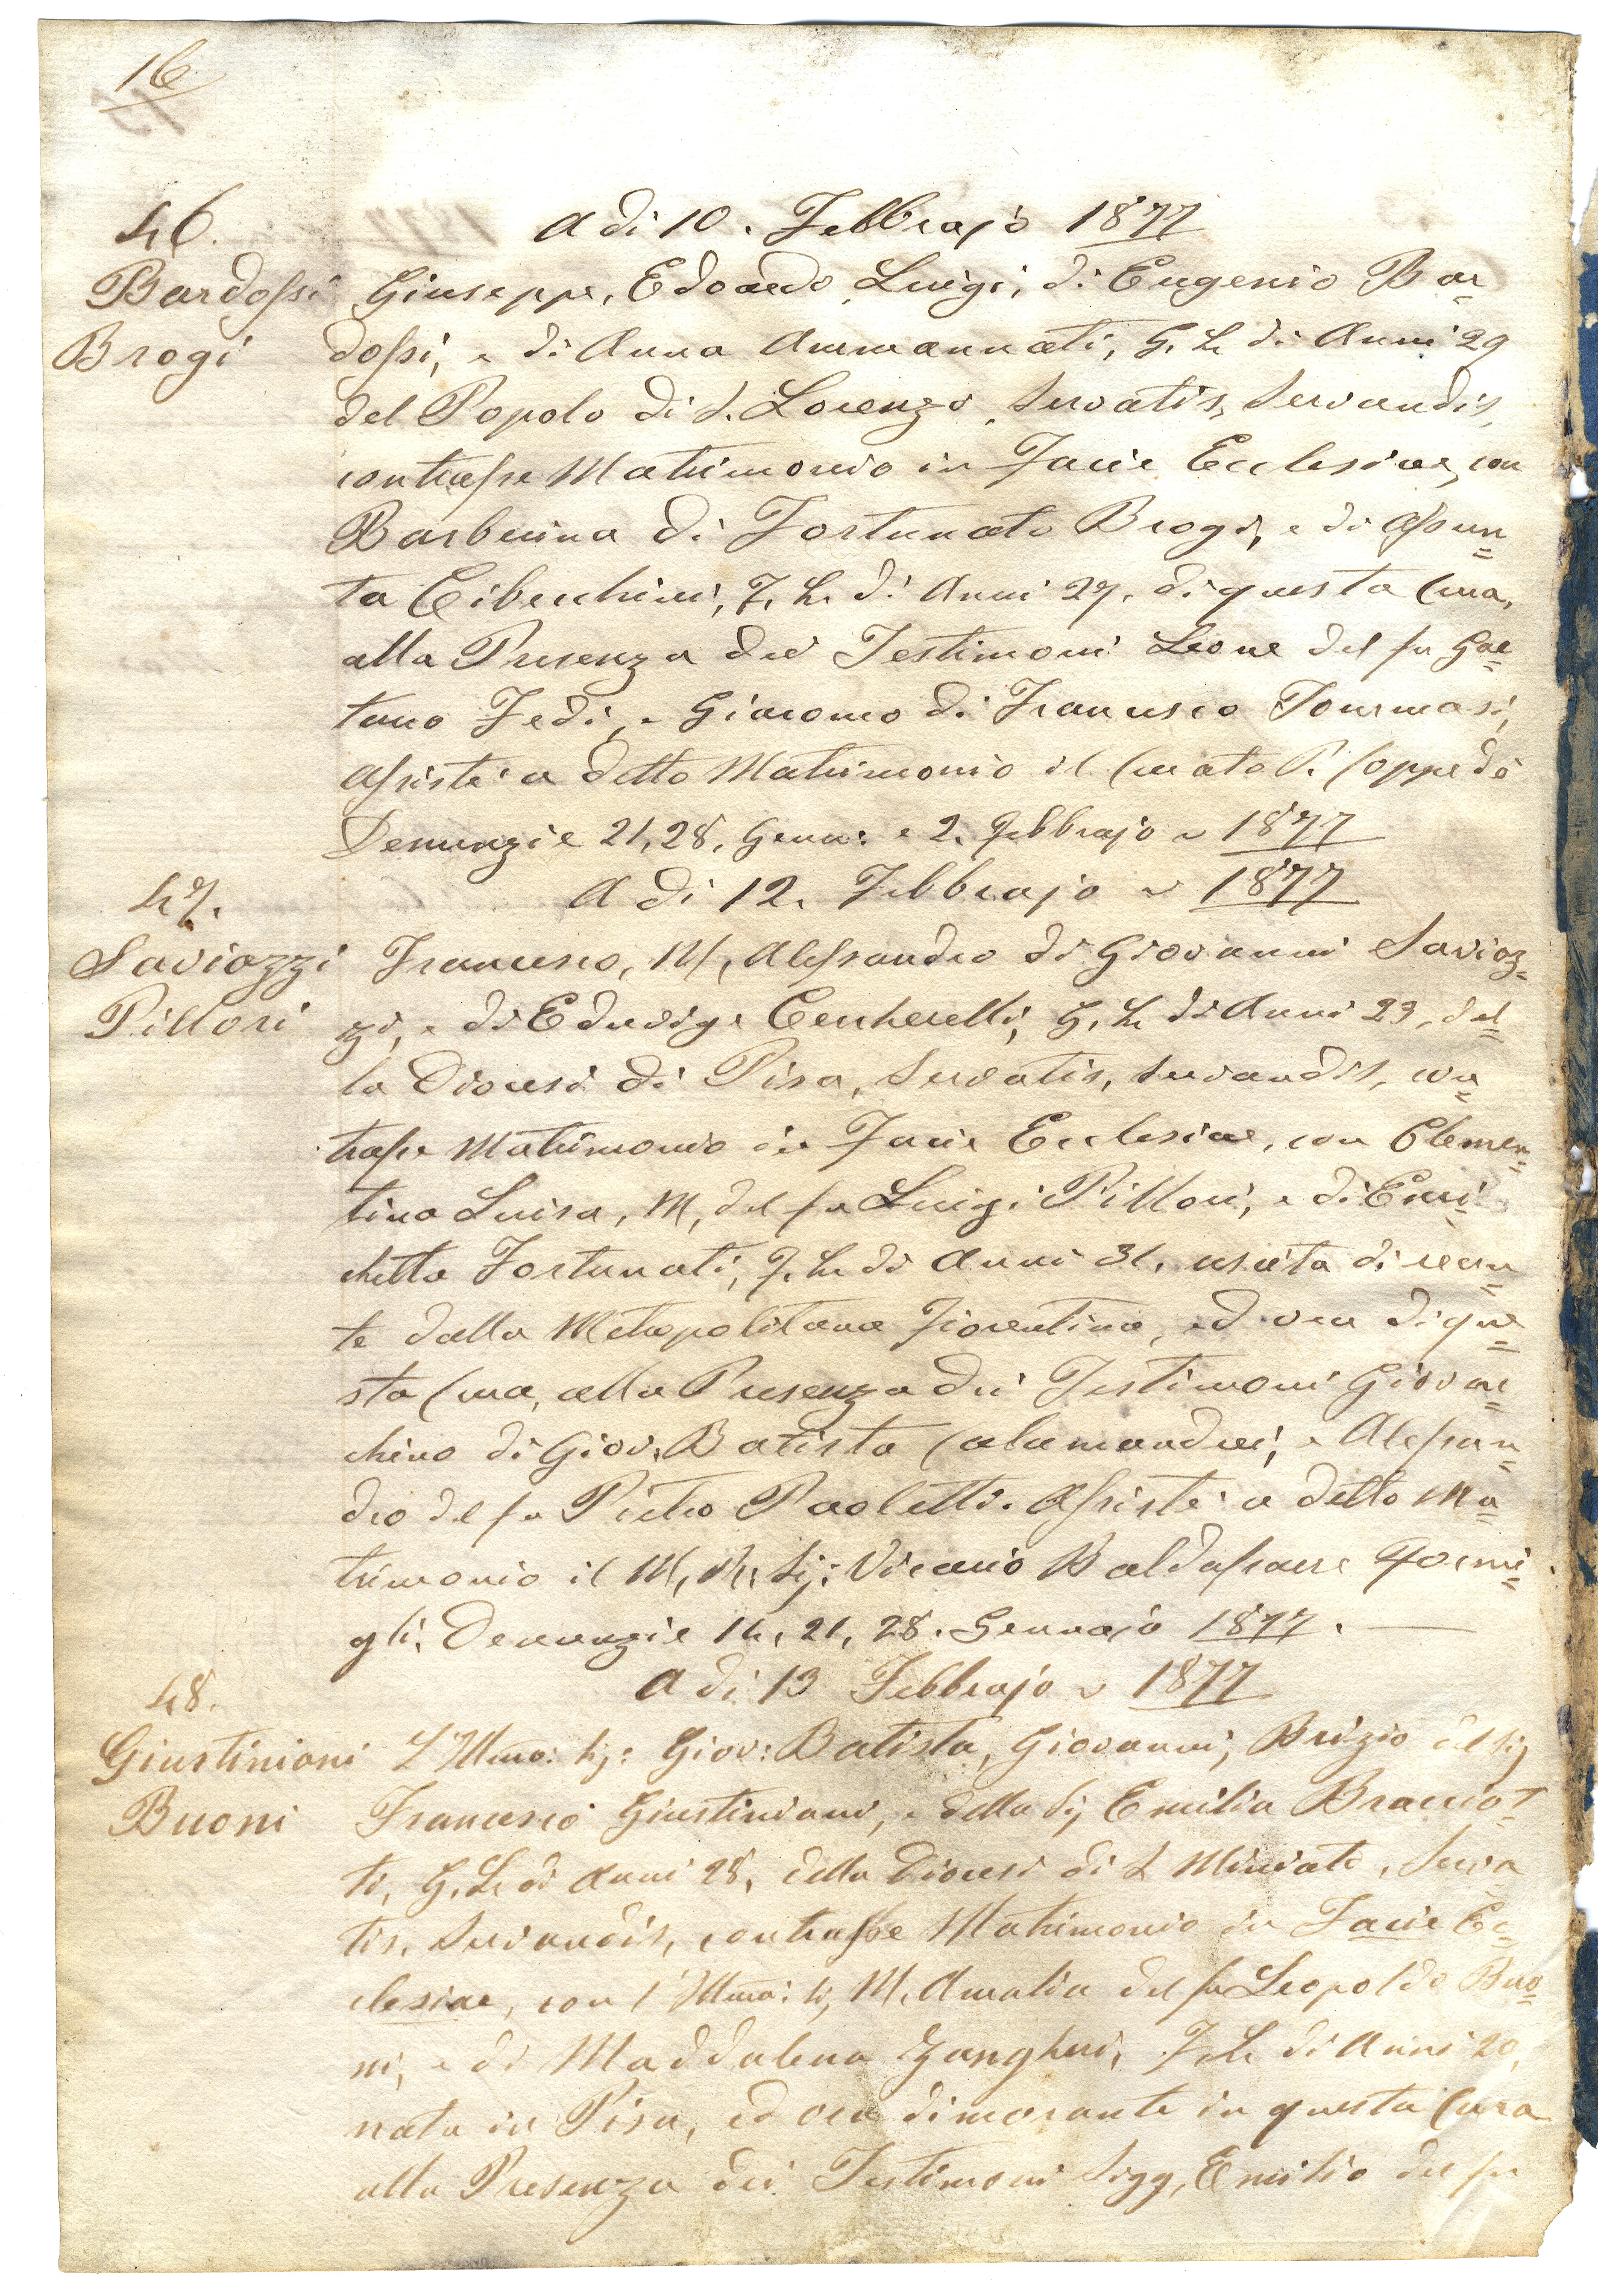 16
46.
A di 10. Febbrajo 1877
Bardossi
Brogi
Giuseppe, Edoardo, Luigi, di Eugenio Bar=
dossi, e di Anna Ammannati, G. L. di Anni 29
del Popolo di S. Lorenzo, Servatis, Servandis,
contrasse Matrimonio in Facie Ecclesiae, con
Barberina di Fortunato Brogi, e di Assun=
ta Cibecchini, F. L. di Anni 27. di questa Cura,
alla Presenza dei Testimoni Leone del fu Gae=
tano Fedi, e Giacomo di Francesco Tommasi,
Assistè a detto Matrimonio il Curato P. Coppedè
Denunzie 21, 28, Genn: e 2. Febbrajo 1877
47.
A di 12. Febbrajo 1877
Saviozzi
Pillori
Francesco, M, Alessandro di Giovanni Savioz=
zi, e di Eduvige Cecherelli, G. L. di Anni 23, del=
la Diocesi di Pisa, Servatis, Servandis, con=
trasse Matrimonio in Facie Ecclesiae, con Clemen=
tina Luisa, M, del fu Luigi Pillori, e di Enri=
chetta Fortunati, F. L. di Anni 31. uscita di recen=
te dalla Metropolitana Fiorentina, ed ora di que=
sta Cura, alla Presenza dei Testimoni Giovac=
chino di Giov. Batista Calamandrei, e Alessan=
dro del fu Pietro Paoletti. Assistè a detto Ma=
trimonio il M. R. Sig: Vicario Baldassarre Formi=
gli. Denunzie 14, 21, 28. Gennajo 1877.
48.
A di 13 Febbrajo 1877
Giustiniani
Buoni
L'Illmo: Sig: Giov: Batista, Giovanni, Brizio del Sig
Francesco Giustiniani, e della Sig Emilia Bracciot=
ti, G. L. di Anni 28, della Diocesi di S Miniato, Serva
tis, Servandis, contrasse Matrimonio in Facie Ec=
clesiae, con l'Illma: Sig M. Amalia del fu Leopoldo Buo=
ni, e di Maddalena Zangheri, F. L. di Anni 20,
nata in Pisa, ed ora dimorante in questa Cura
alla Presenza dei Testimoni Sigg, Emilio del fu